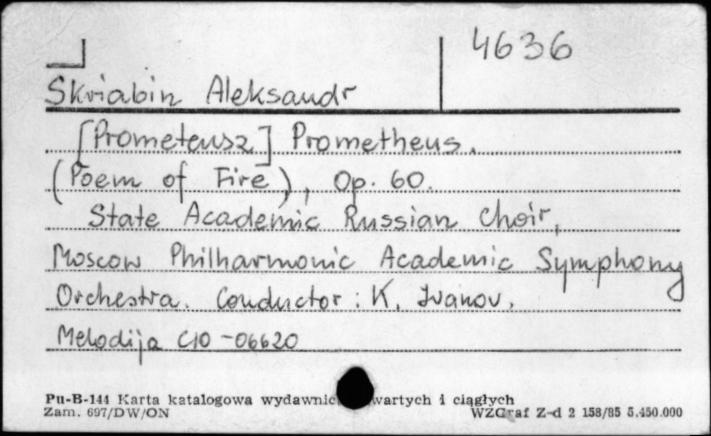 4636
Skriabin Aleksandr
[Prometeusz] Prometheus.
(Poem of Fire), Op. 60.
State Academic Russian Choir,
Moscow Philharmonic Academic Symphony
Orchestra. Conductor: K. Ivanov.
Melodija C10-06620
Pu-B-144 Karta katalogowa wydawnic wartych i ciągłych
Zam. 697/DW/ON WZGraf Z-d 2 158/85 5.450.000